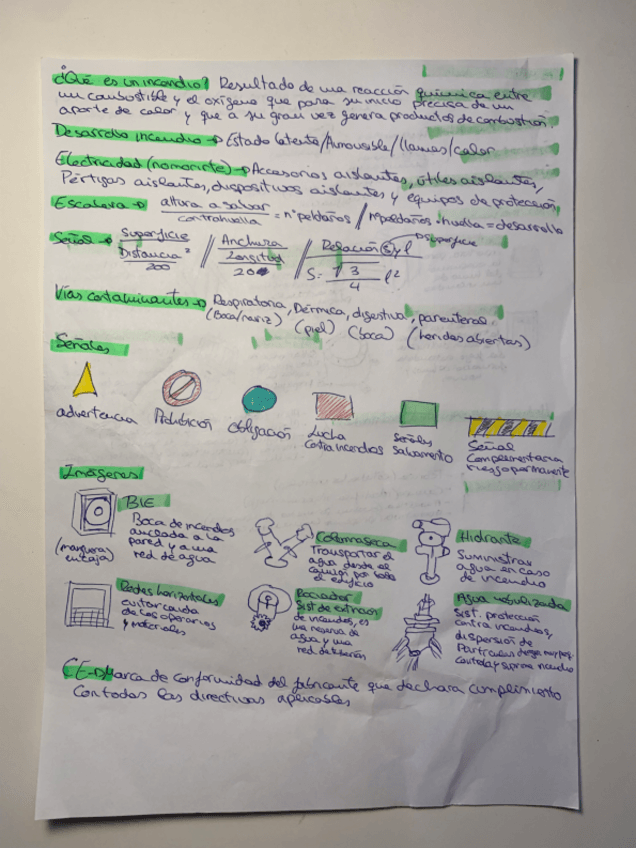 ¿Qué es un incendio? Resultado de una reacción química entre
un combustible y el oxígeno que para su inicio precisa de un
aporte de calor y que a su gran vez genera productos de combustión.
Desarrollo incendio → Estado latente/ /llamas/calor
Electricidad → Accesorios aislantes, útiles aislantes,
Pértigas aislantes, dispositivos aislantes y equipos de protección
Escalera → altura a salvar / contrahuella = nº peldaños / Nºpeldaños · huella = desarrollo
Señal → Superficie // Anchura / Relación S y l → superficie
Distancia² Longitud S = √3 l²
200 20 4
Vías contaminantes → Respiratoria, Dérmica, digestiva, parenteral.
(Boca/nariz) (piel) (boca) (heridas abiertas)
Señales
advertencia Prohibición Obligación Lucha Contra incendios Señales Salvamento Señal Complementaria riesgo permanente
Imágenes
BIE
Boca de incendios
anclada a la
pared y a una
red de agua
(manguera
en caja)
Columna seca
Transportar el
agua desde el
camión por todo
el edificio
Hidrante
Suministrar
agua en caso
de incendio
Redes horizontales
evitar caida
de los operarios
y materiales
Rociador
Sist de extinción
de incendios, es
una reserva de
agua y una
red de tuberías
Agua nebulizada
Sist. protección
contra incendios,
dispersión de
Partículas de agua muy peq.
Controla y suprime incendio
CE → Marca de conformidad del fabricante que declara cumplimiento
Con todas las directivas aplicables